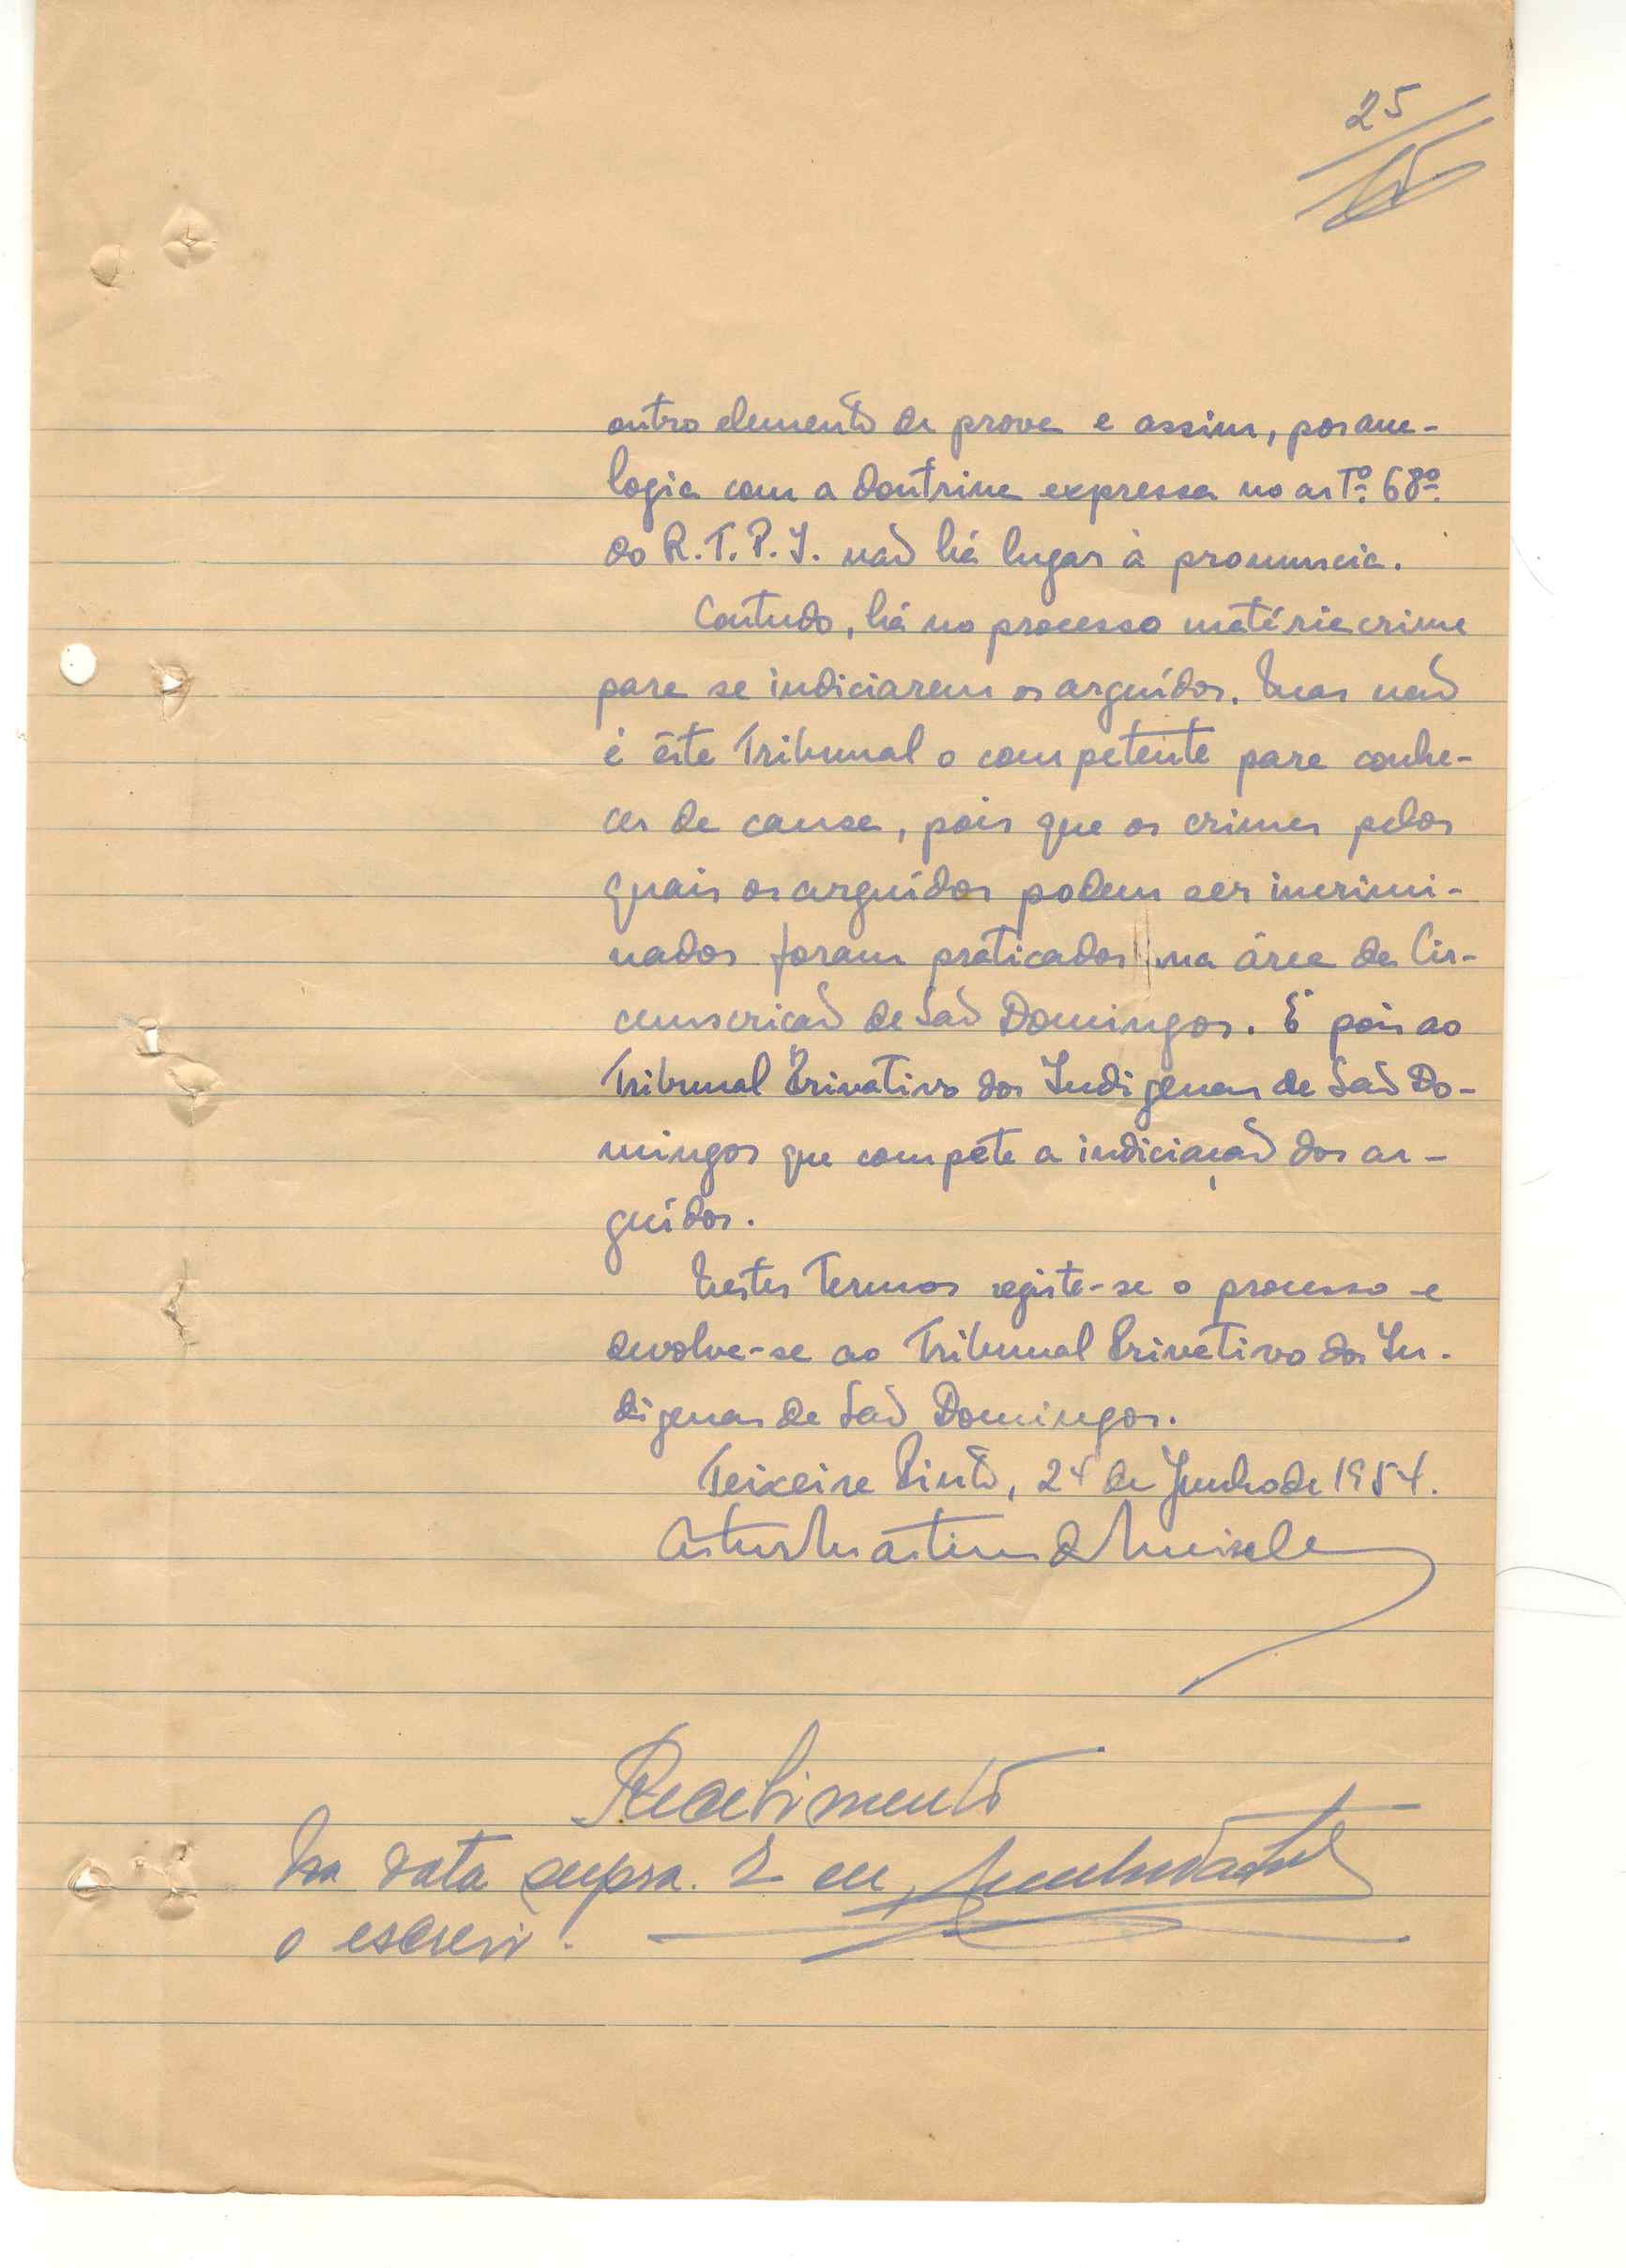 25
outro elemento de prova e assim, por ana-
logia com a doutrina expressa no artº. 68º.
do R.T.P.I. não há lugar à pronuncia.
Contudo, há no processo matéria crime
para se indiciarem os arguídos. Mas não
é êste Tribunal o competente para conhe-
cer da causa, pois que os crimes pelos
quais os arguídos podem ser incrimi-
nados foram praticados na área da Cir-
cunscricão de São Domingos. É pois ao
Tribunal Privativo dos Indigenas de São Do-
mingos que compete a indiciação dos ar-
guídos.
Nestes termos registe-se o processo e
devolva-se ao Tribunal Privativo dos In-
digenas de São Domingos.
Teixeira Pinto, 24 de Junho de 1954.
Artur Martins de Meireles
Recebimento
Na data supra. E eu,
o escrevi.